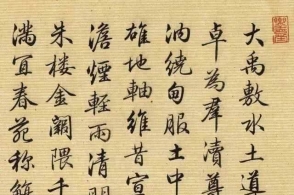 大禹敷水土道
卓為羣瀆尊
繞甸服土中
雄地軸維昔宣
澹煙輕雨清明
朱樓金闕隈千
滿宜春苑称